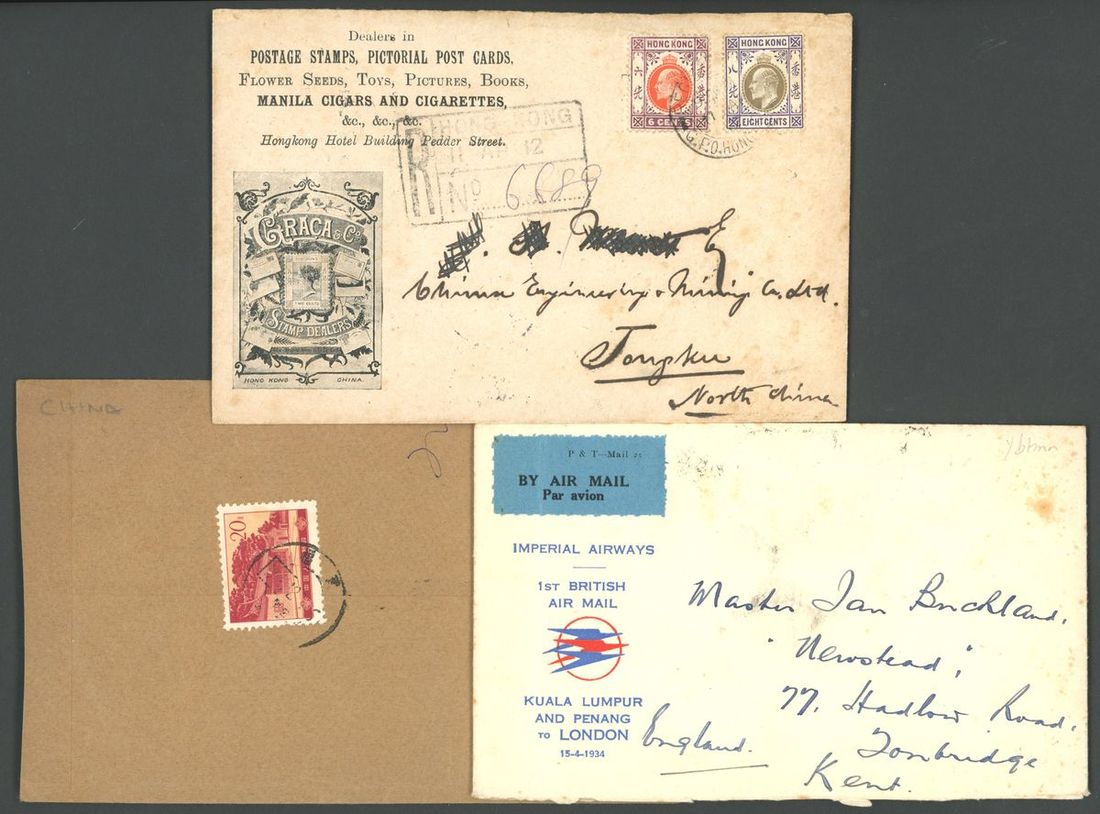 Dealers in
POSTAGE STAMPS, PICTORIAL POST CARDS,
FLOWER SEEDS, TOYS, PICTURES, BOOKS,
MANILA CIGARS AND CIGARETTES,
&c., &c., &c.
Hongkong Hotel Building Pedder Street.
HONG KONG
六 先
香 港
6 CENTS
HONG KONG
八 先
香 港
EIGHT CENTS
G.P.O. HONG
R
HONG KONG
No 6689
GRACA & Co
TWO CENTS
STAMP DEALERS
HONG KONG CHINA.
China Engineering & Mining Co. Ltd.
Tongku
North China
CHINA
20
P & T—Mail 25
BY AIR MAIL
Par avion
IMPERIAL AIRWAYS
1ST BRITISH
AIR MAIL
KUALA LUMPUR
AND PENANG
TO LONDON
15-4-1934
Master Ian Brickland.
"Newstead",
77, Hadlow Road.
Tonbridge
Kent.
England.